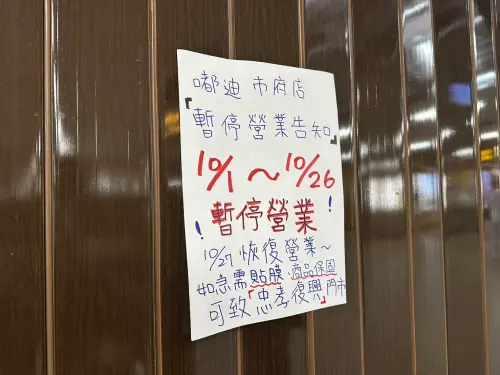 嘟迪 市府店
「暫停營業告知」
10/1～10/26
!暫停營業!
10/27 恢復營業～
如急需貼膜、商品保固
可致「忠孝復興」門市